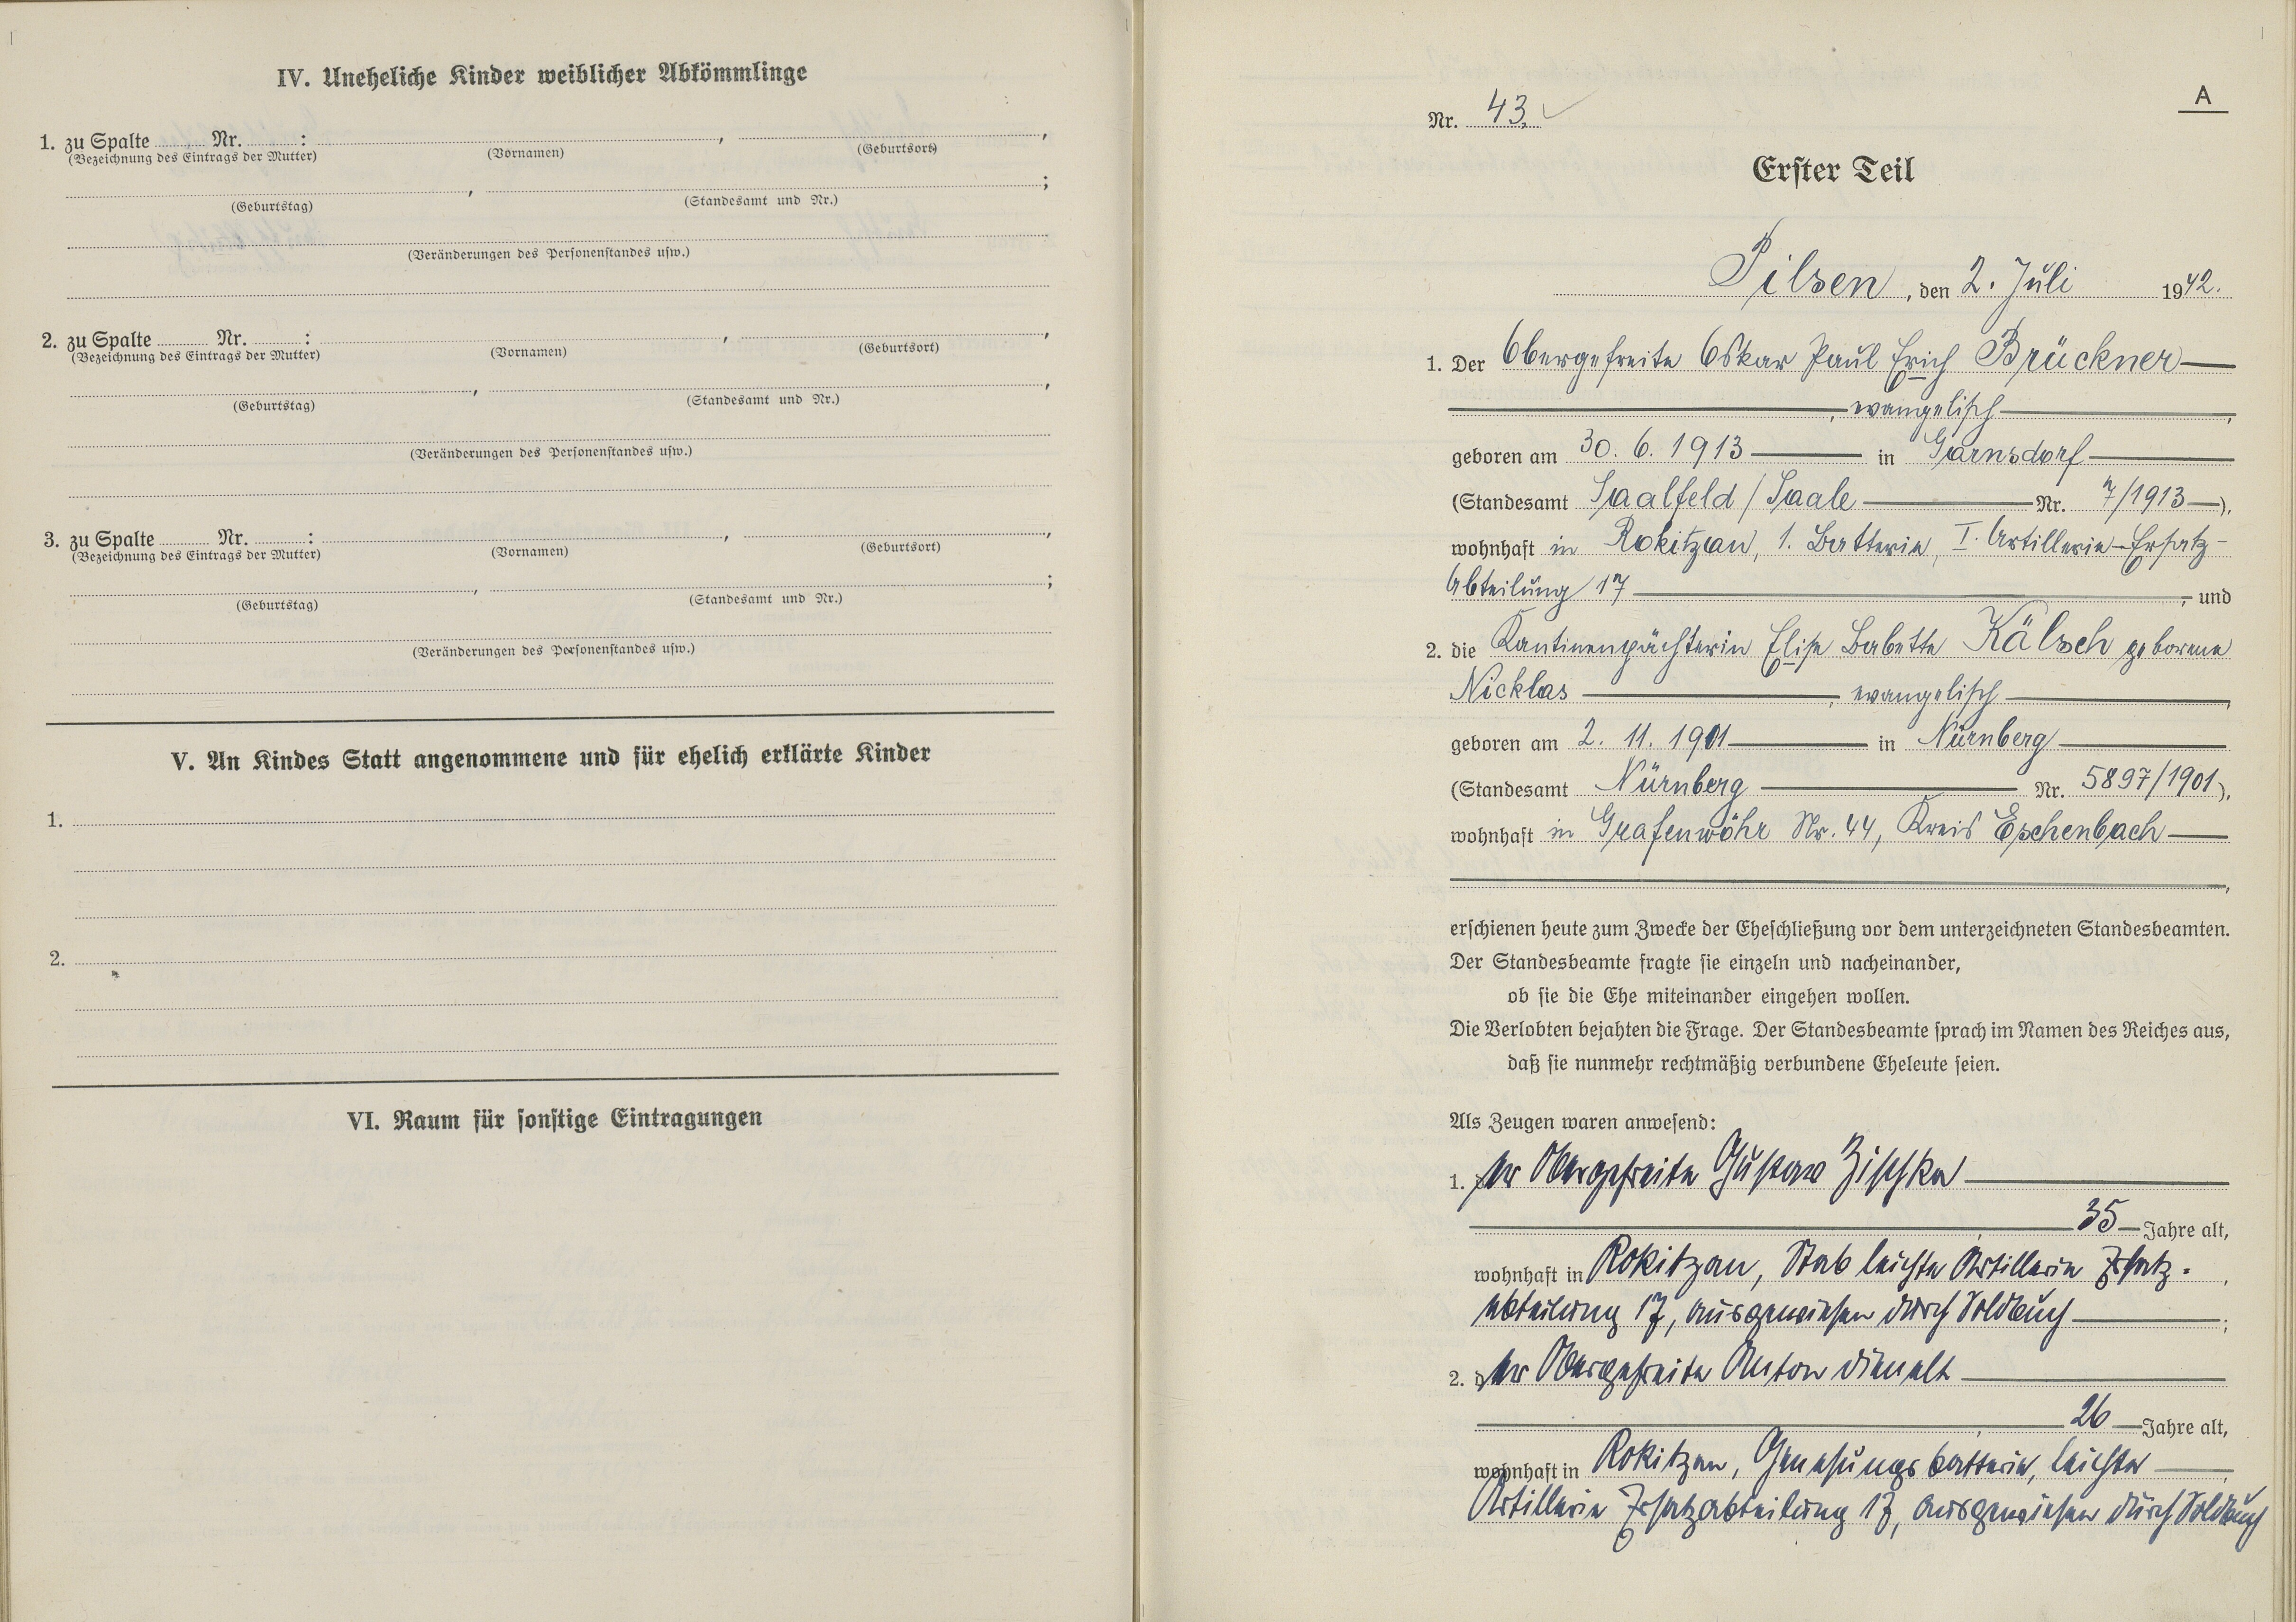 IV. Uneheliche Kinder weiblicher Abkömmlinge
1. zu Spalte ........ Nr. ........ : ........ , ........ ,
(Bezeichnung des Eintrags der Mutter) (Vornamen) (Geburtsort)
........ , ........ ;
(Geburtstag) (Standesamt und Nr.)
(Veränderungen des Personenstandes usw.)
2. zu Spalte ........ Nr. ........ : ........ , ........ ,
(Bezeichnung des Eintrags der Mutter) (Vornamen) (Geburtsort)
........ , ........ ,
(Geburtstag) (Standesamt und Nr.)
(Veränderungen des Personenstandes usw.)
3. zu Spalte ........ Nr. ........ : ........ , ........ ,
(Bezeichnung des Eintrags der Mutter) (Vornamen) (Geburtsort)
........ , ........ ;
(Geburtstag) (Standesamt und Nr.)
(Veränderungen des Personenstandes usw.)
V. An Kindes Statt angenommene und für ehelich erklärte Kinder
1.
2.
VI. Raum für sonstige Eintragungen
A
Nr. 43.
Erster Teil
Pilsen, den 2. Juli 1942.
1. Der Obergefreite Oskar Paul Erich Brückner
, evangelisch ,
geboren am 30. 6. 1913 in Garnsdorf
(Standesamt Saalfeld / Saale Nr. 7/1913),
wohnhaft in Rokitzan, 1. Batterie, I. Artillerie-Ersatz-
Abteilung 17 , und
2. die Kantinenpächterin Elise Babette Kälsch geborene
Nicklas , evangelisch ,
geboren am 2. 11. 1901 in Nürnberg
(Standesamt Nürnberg Nr. 5897/1901),
wohnhaft in Grafenwöhr Nr. 44, Kreis Eschenbach
,
erschienen heute zum Zwecke der Eheschließung vor dem unterzeichneten Standesbeamten.
Der Standesbeamte fragte sie einzeln und nacheinander,
ob sie die Ehe miteinander eingehen wollen.
Die Verlobten bejahten die Frage. Der Standesbeamte sprach im Namen des Reiches aus,
daß sie nunmehr rechtmäßig verbundene Eheleute seien.
Als Zeugen waren anwesend:
1. der Obergefreite Gustav Zischka
, 35 Jahre alt,
wohnhaft in Rokitzan, Stab leichte Artillerie Ersatz- ,
abteilung 17, ausgewiesen durch Soldbuch ;
2. der Obergefreite Anton Dienelt
, 26 Jahre alt,
wohnhaft in Rokitzan, Genesungsbatterie, leichte
Artillerie Ersatzabteilung 17, ausgewiesen durch Soldbuch